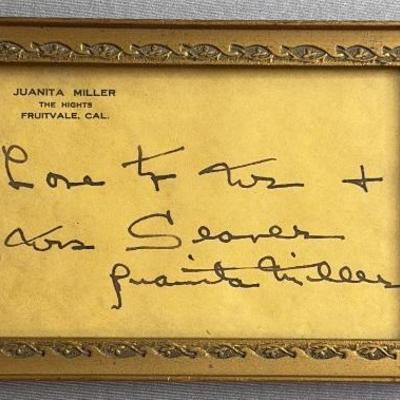 JUANITA MILLER
THE HIGHTS
FRUITVALE, CAL.
Love to Mr +
Mrs Seaver
Juanita Miller